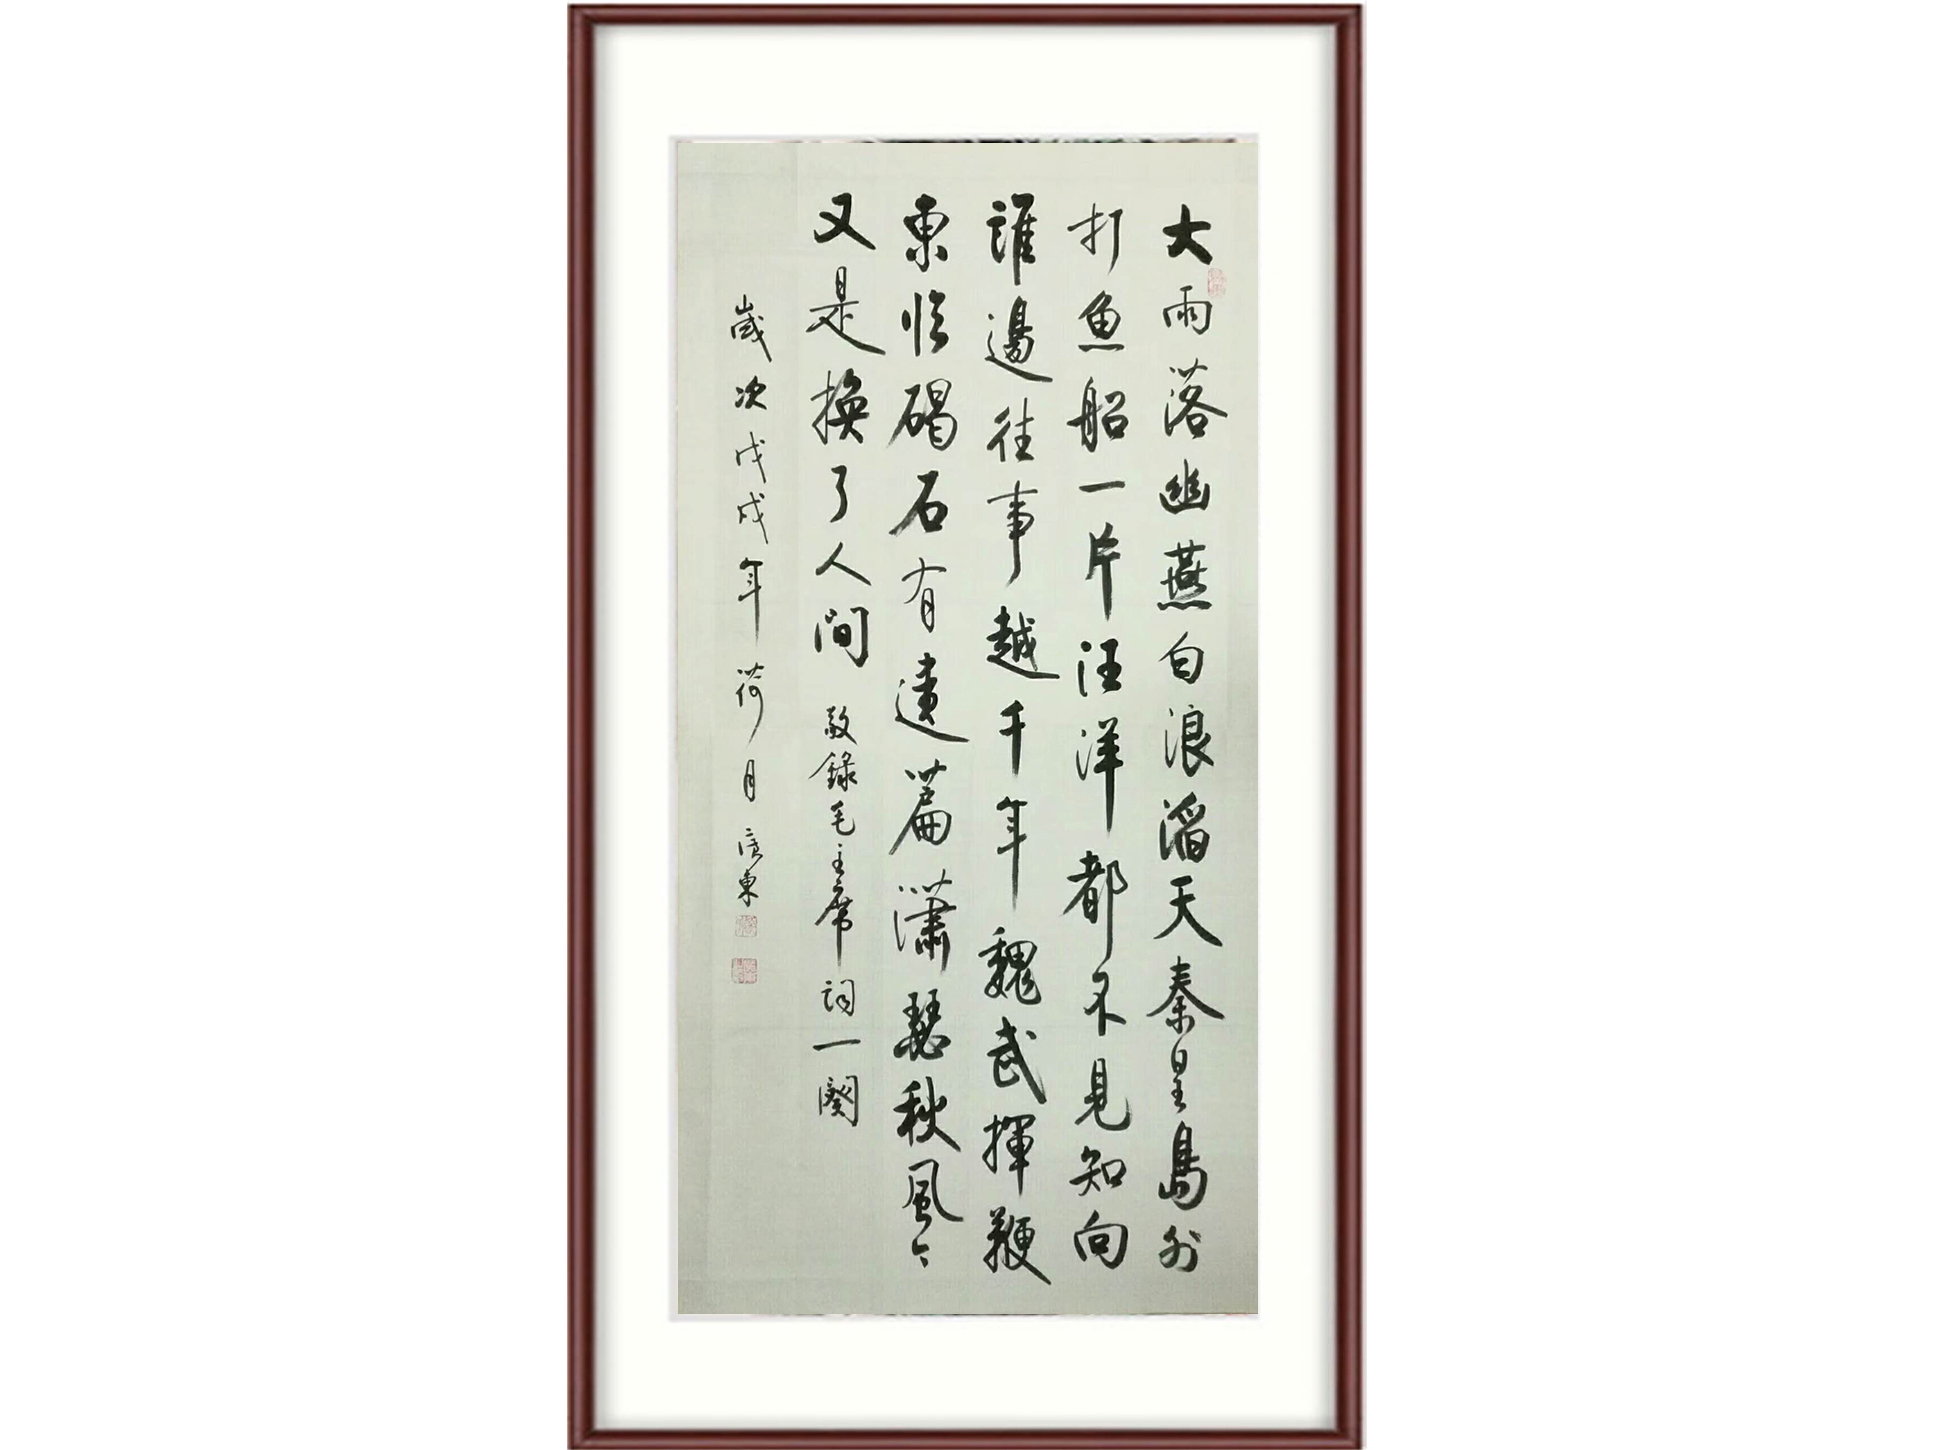 大雨落幽燕白浪滔天秦皇島外
打鱼船一片汪洋都不見知向
誰邊往事越千年魏武揮鞭
東临碣石有遺篇瀟瑟秋風今
又是換了人间 敬錄毛主席詞一闋
歲次戊戌年荷月 廣東